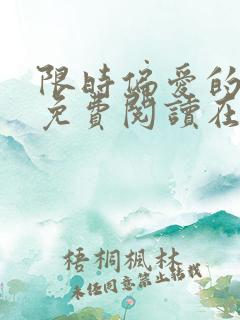 限时偏爱的
免費閱讀在
梧桐楓林
未经同意禁止转载